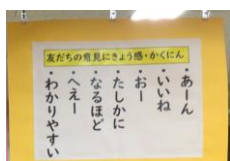 友だちの意見にきょう感・かくにん
・あーん
・いいね
・おー
・たしかに
・なるほど
・へえー
・わかりやすい